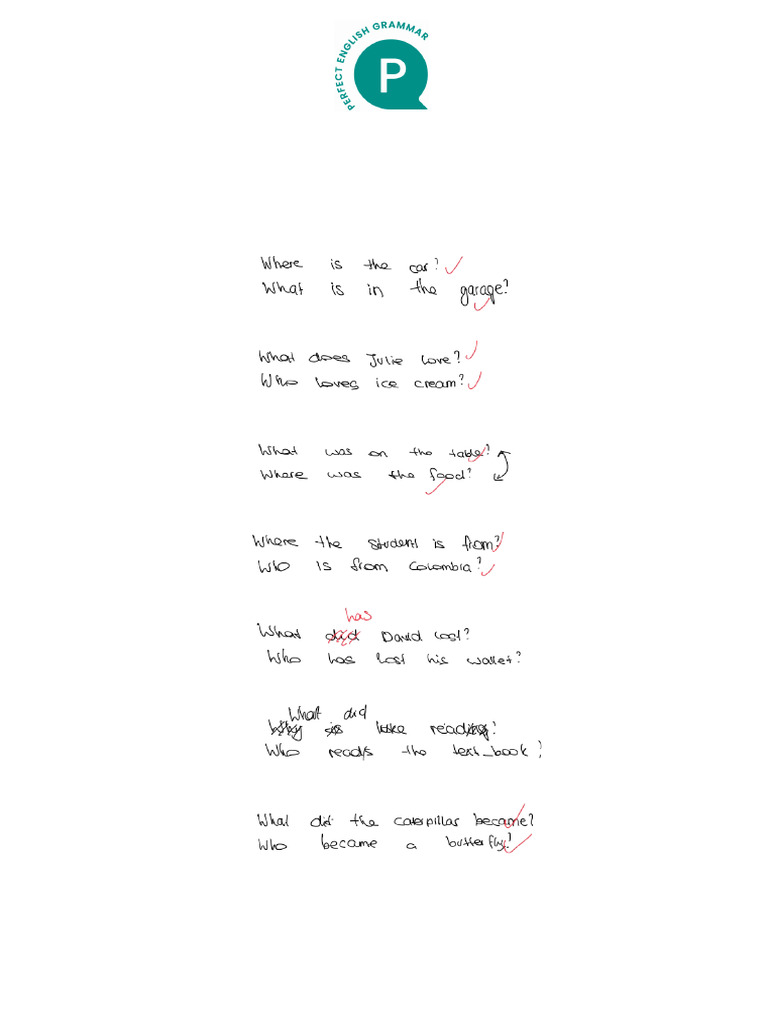 PERFECT ENGLISH GRAMMAR
P
Where is the car?
What is in the garage?
What does Julie love?
Who loves ice cream?
What was on the table?
Where was the food?
Where the student is from?
Who is from Colombia?
has
What did David lost?
Who has lost his wallet?
What did
Why is luke reading?
Who reads the text_book?
What did the caterpillar became?
Who became a butterfly?